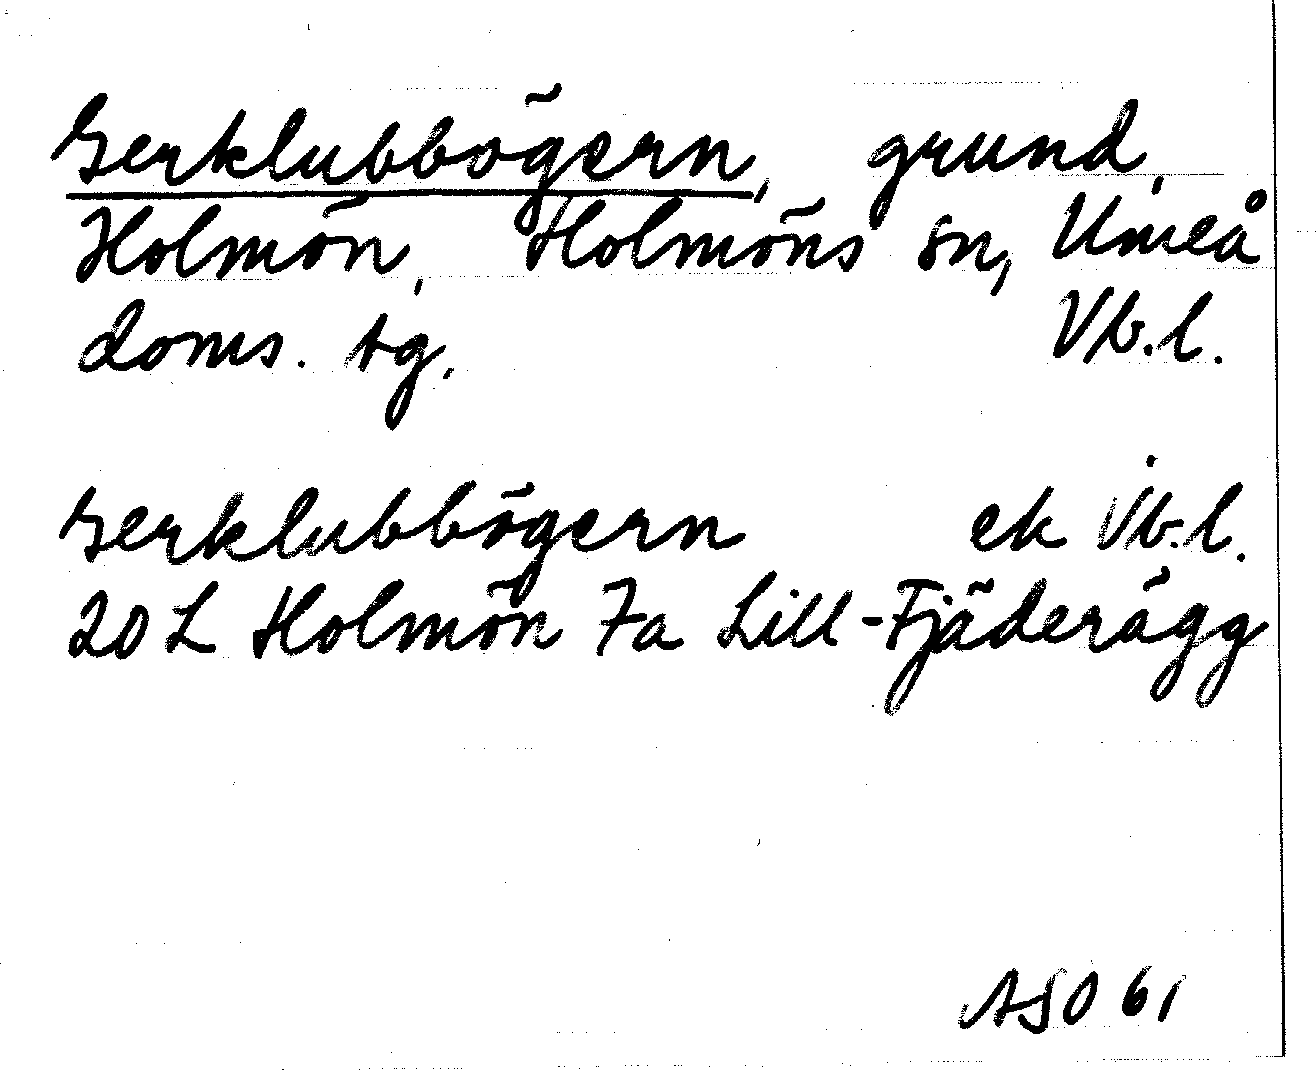 Gerklubbögern, grund,
Holmön, Holmöns sn, Umeå
doms. tg. Vb.l.
Gerklubbögern ek Vb.l.
20 L Holmön 7a Lill-Fjäderägg
ASO 61